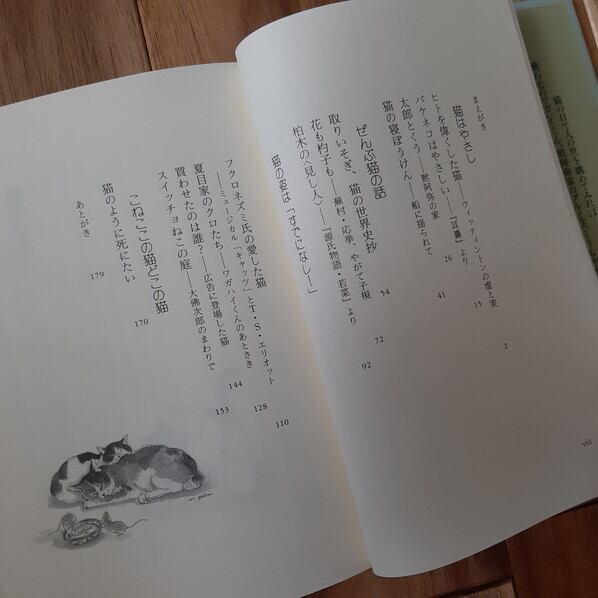 まえがき
猫はやさし
ヒトを偉くした猫——ウィッティントンの虚と実 2
バケネコはやさしい——『耳囊』より 15
太郎とくう——黙阿弥の家 26
猫の寝ぼうけん——船に揺られて 41
ぜんぶ猫の話
取りいそぎ、猫の世界史抄 54
花も杓子も——蕪村・応挙、やがて子規 72
柏木の〈見し人〉——『源氏物語・若菜』より 92
猫の姿は「すでになし!」
フクロネズミ氏の愛した猫
——ミュージカル「キャッツ」とT・S・エリオット 110
夏目家のクロたち——ワガハイくんのあとさき 128
買わせたのは誰?——広告に登場した猫 144
スイッチョねこの庭——大佛次郎のまわりで 153
こねここの猫どこの猫
猫のように死にたい 170
あとがき 179
viii